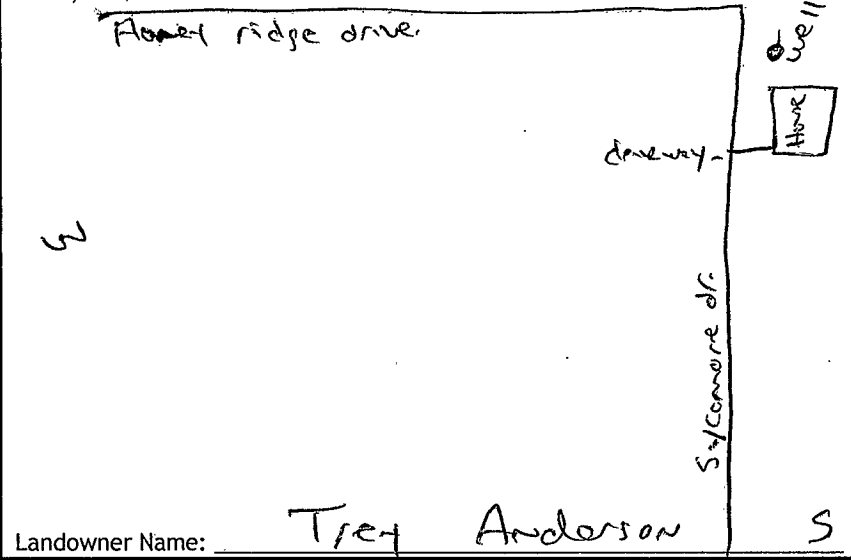 ridge drive.
well
Home
driveway
W
Sycamore dr.
Landowner Name: Trey Anderson
S